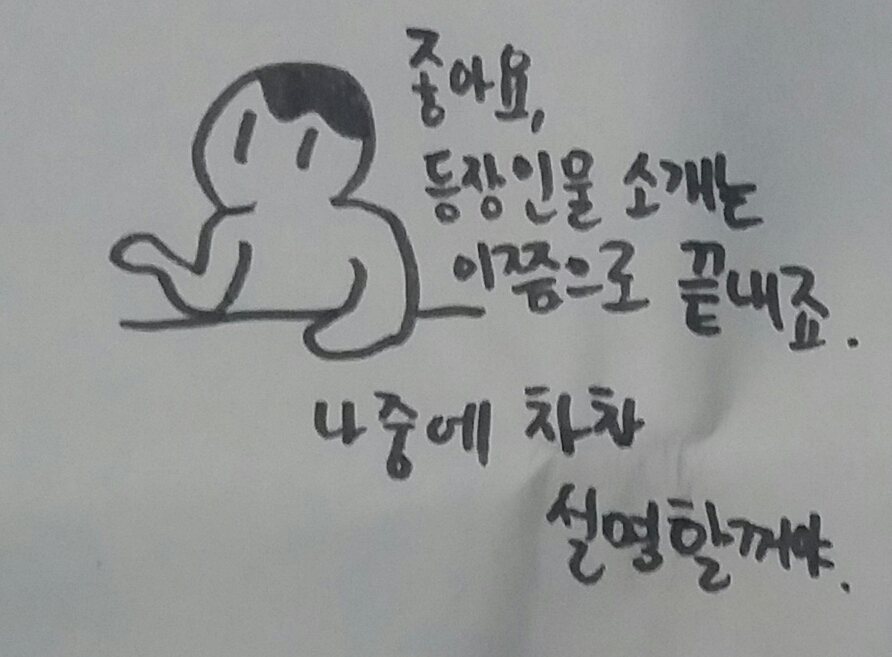 좋아요,
등장인물 소개는
이쯤으로 끝내죠.
나중에 차차
설명할꺼야.